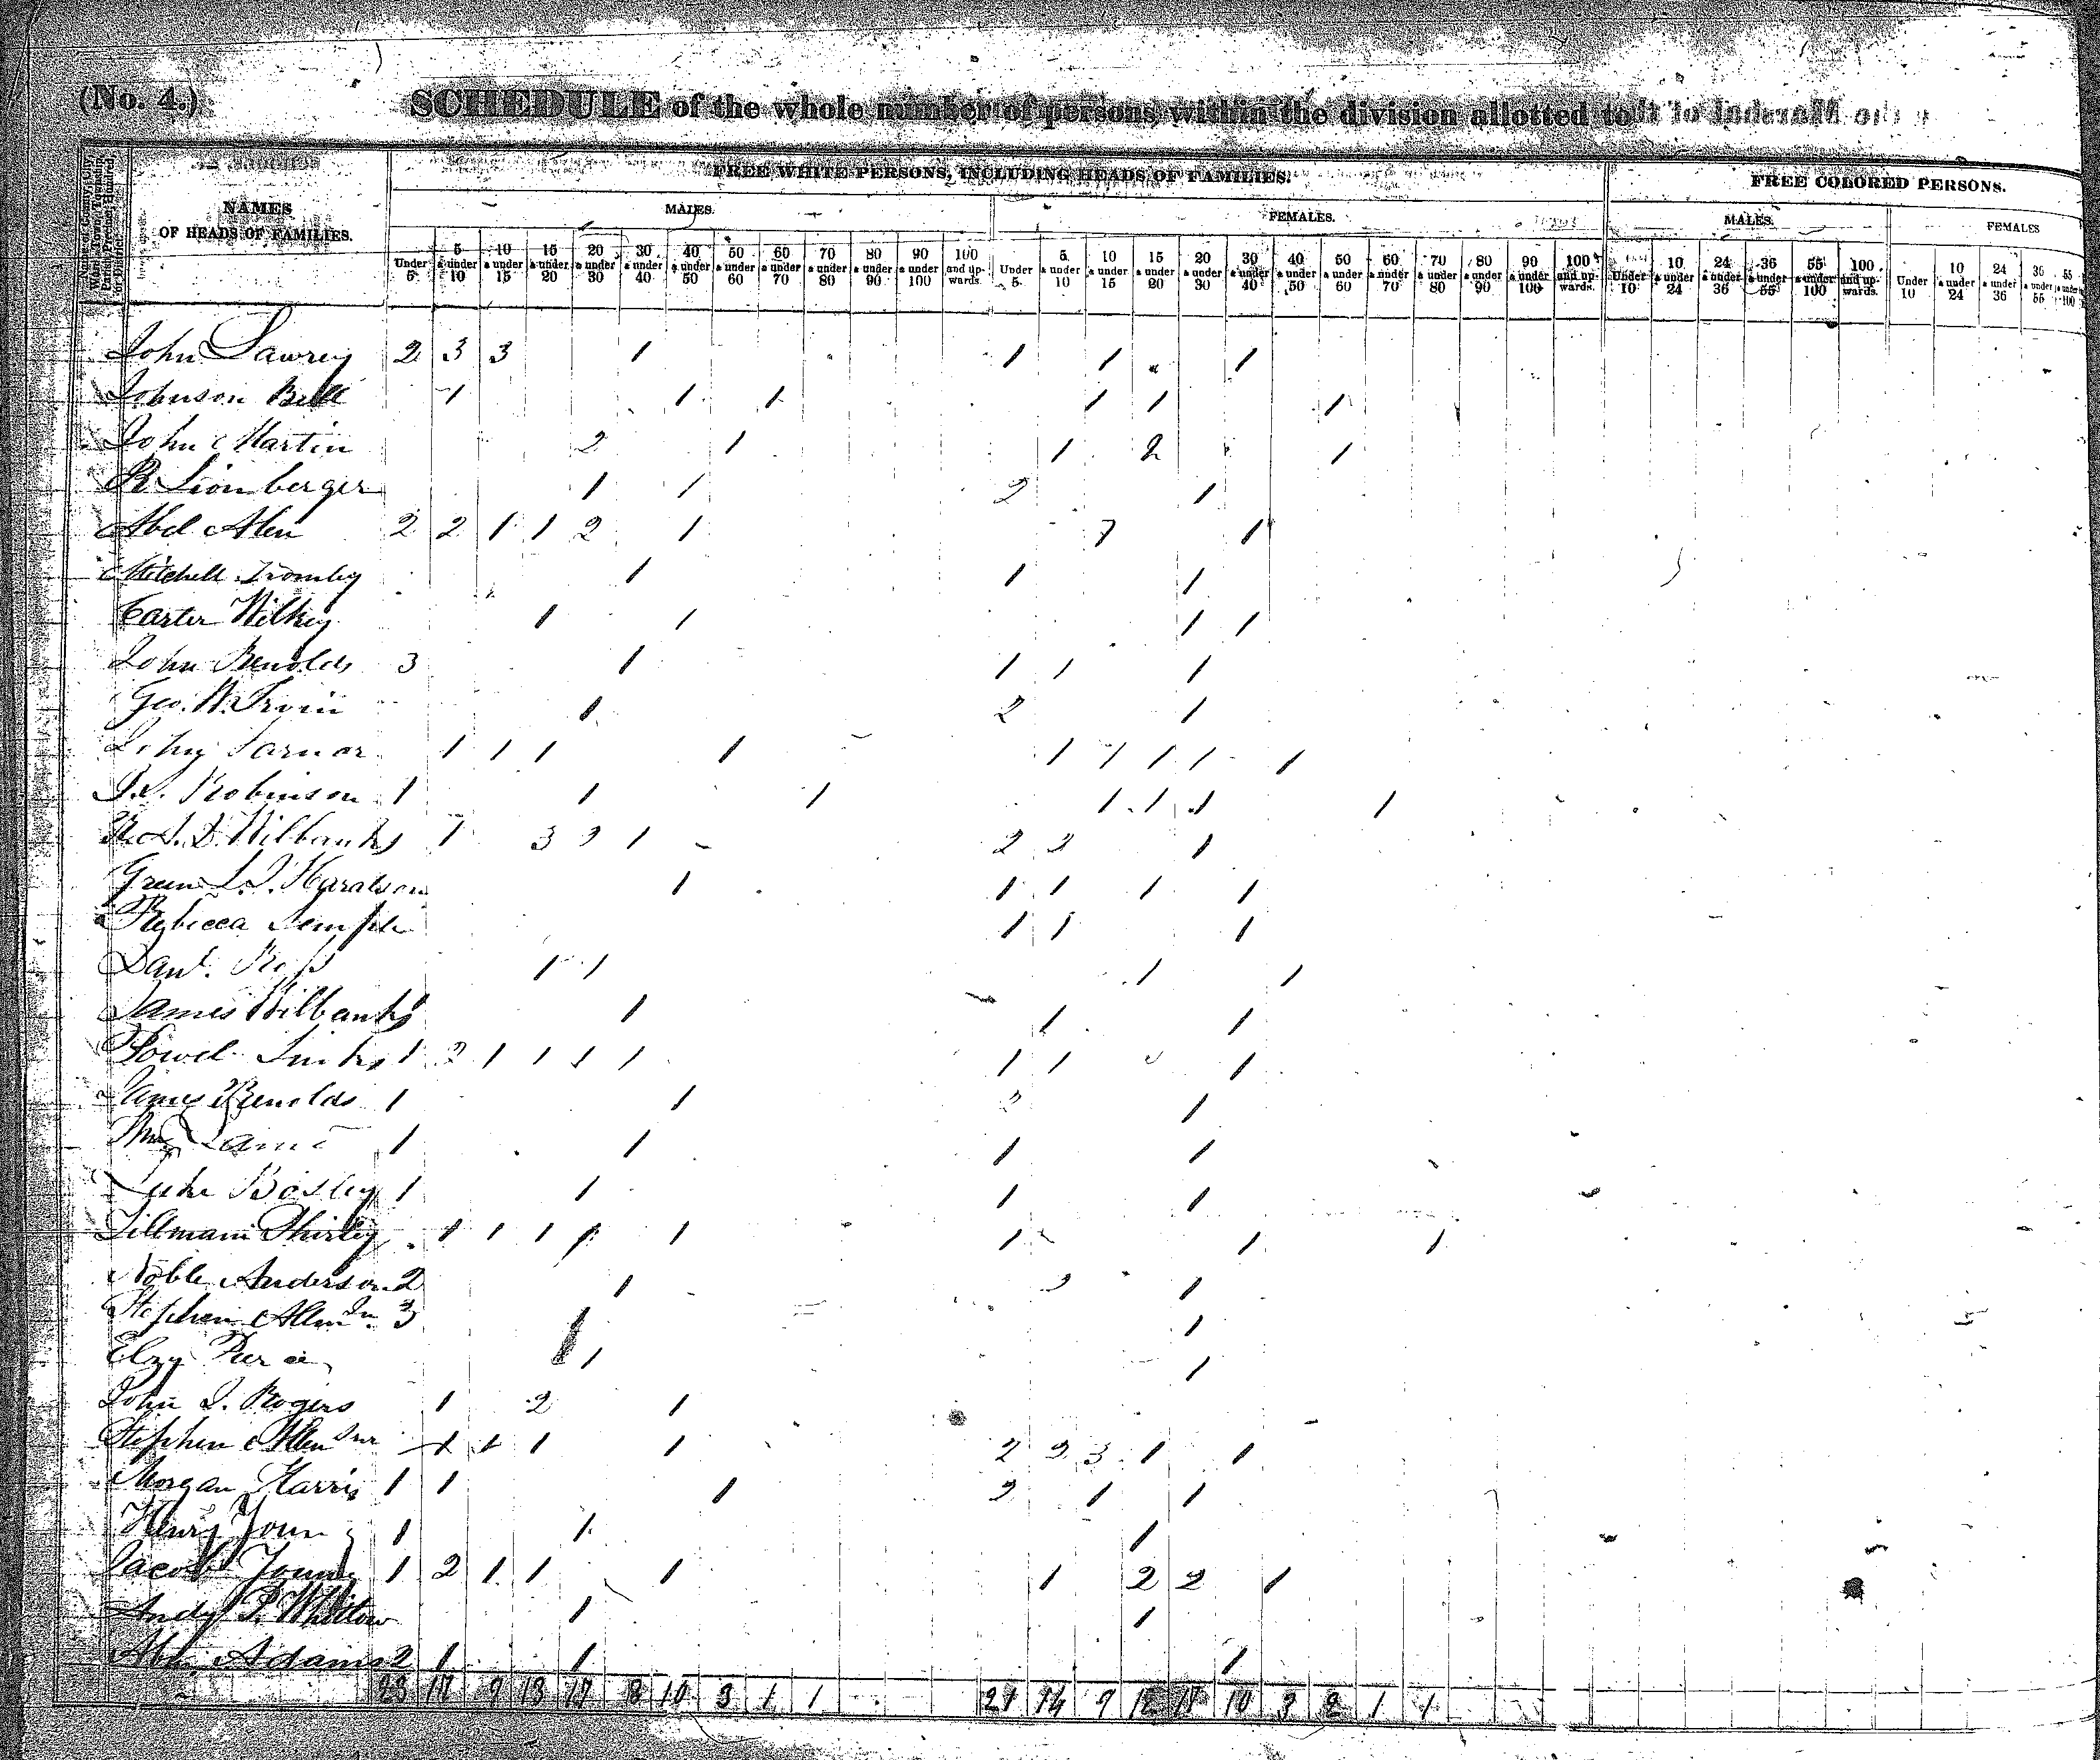 (No. 4.) SCHEDULE of the whole number of persons within the division allotted to
NAMES OF HEADS OF FAMILIES.
FREE WHITE PERSONS, INCLUDING HEADS OF FAMILIES.
FREE COLORED PERSONS.
MALES. FEMALES. MALES. FEMALES
Under 5 5 & under 10 10 & under 15 15 & under 20 20 & under 30 30 & under 40 40 & under 50 50 & under 60 60 & under 70 70 & under 80 80 & under 90 90 & under 100 100 and upwards. Under 5 5 & under 10 10 & under 15 15 & under 20 20 & under 30 30 & under 40 40 & under 50 50 & under 60 60 & under 70 70 & under 80 80 & under 90 90 & under 100 100 and upwards. Under 10 10 & under 24 24 & under 36 36 & under 55 55 & under 100 100 and upwards. Under 10 10 & under 24 24 & under 36 36 & under 55 55 & under 100
John 2 3 3 1 1 1 1
Johnson Bell 1 1 1 1 1 1
John Martin 2 1 1 2 1
R Lionberger 1 1 2 1
Abel Alen 2 2 1 1 2 1 1
Mitchell 1 1 1
Carter Wilkey 1 1 1 1
John Renolds 3 1 1 1 1
Geo. W. Irvin 1 2 1
1 1 1 1 1 1 1 1 1
Robinson 1 1 1 1 1 1 1
Wilbanks 1 3 2 1 2 2 1
Green Haralson 1 1 1 1 1
Rebicca 1 1 1
1 1 1 1
James Wilbanks 1 1 1
1 2 1 1 1 1 1 1 1
James Renolds 1 1 2 1
1 1 1 1
Luke Bosley 1 1 1 1
Tillman Shirley 1 1 1 1 1 1 1 1
Noble Anderson 2 1 2 1
Stephen Allen Jn. 3 1 1
Elzy Pierce 1 1
John Rogers 1 2 1
Stephen Allen Snr 1 1 1 1 2 2 3 1 1
Morgan Harris 1 1 1 2 1 1
Henry Young 1 1 1
Jacob Young 1 2 1 1 1 1 2 2 1
Andy P. Whitlow 1 1
Adams 2 1 1 1
23 17 9 13 17 8 10 3 1 1 21 14 9 12 17 10 3 2 1 1